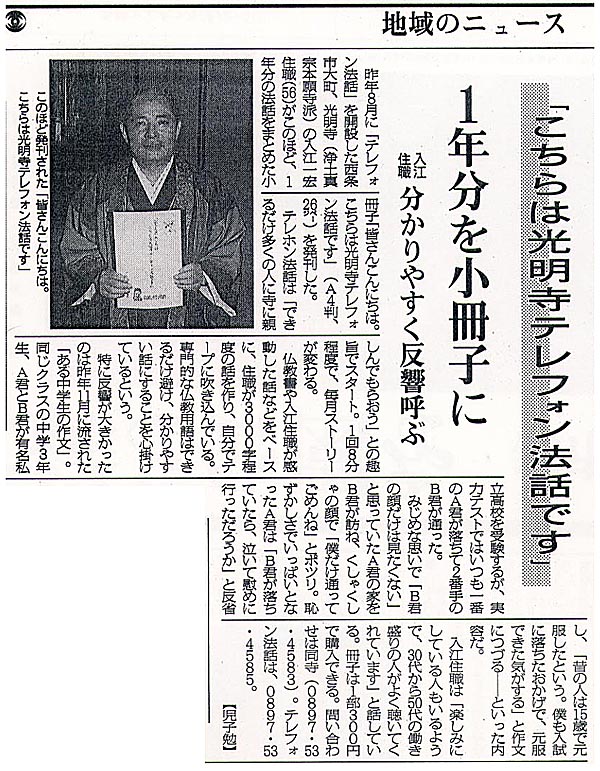 地域のニュース
「こちらは光明寺テレフォン法話です」
1年分を小冊子に
入江住職 分かりやすく反響呼ぶ
昨年8月に「テレフォ
ン法話」を開設した西条
市大町、光明寺（浄土真
宗本願寺派）の入江一宏
住職(56)がこのほど、1
年分の法話をまとめた小
冊子「皆さんこんにちは。
こちらは光明寺テレフォ
ン法話です」（A4判、
26㌻）を発刊した。
テレホン法話は「でき
るだけ多くの人に寺に親
しんでもらおう」との趣
旨でスタート。1回8分
程度で、毎月ストーリー
が変わる。
仏教書や入江住職が感
動した話などをベース
に、住職が3000字程
度の話を作り、自分でテ
ープに吹き込んでいる。
専門的な仏教用語はでき
るだけ避け、分かりやす
い話にすることを心掛け
ているという。
特に反響が大きかった
のは昨年11月に流された
「ある中学生の作文」。
同じクラスの中学3年
生、A君とB君が有名私
立高校を受験するが、実
力テストではいつも一番
のA君が落ちて2番手の
B君が通った。
みじめな思いで「B君
の顔だけは見たくない」
と思っていたA君の家を
B君が訪ね、くしゃくし
ゃの顔で「僕だけ通って
ごめんね」とポツリ。恥
ずかしさでいっぱいとな
ったA君は「B君が落ち
ていたら、泣いて慰めに
行っただろうか」と反省
し、「昔の人は15歳で元
服したという。僕も入試
に落ちたおかげで、元服
できた気がする」と作文
につづる――といった内
容だ。
入江住職は「楽しみに
している人もいるよう
で、30代から50代の働き
盛りの人がよく聴いてく
れています」と話してい
る。冊子は1部300円
で購入できる。問い合わ
せは同寺（0897・53
・4583）。テレフォ
ン法話は、0897・53
・4585。
【児子勉】
このほど発刊された「皆さんこんにちは。
こちらは光明寺テレフォン法話です」